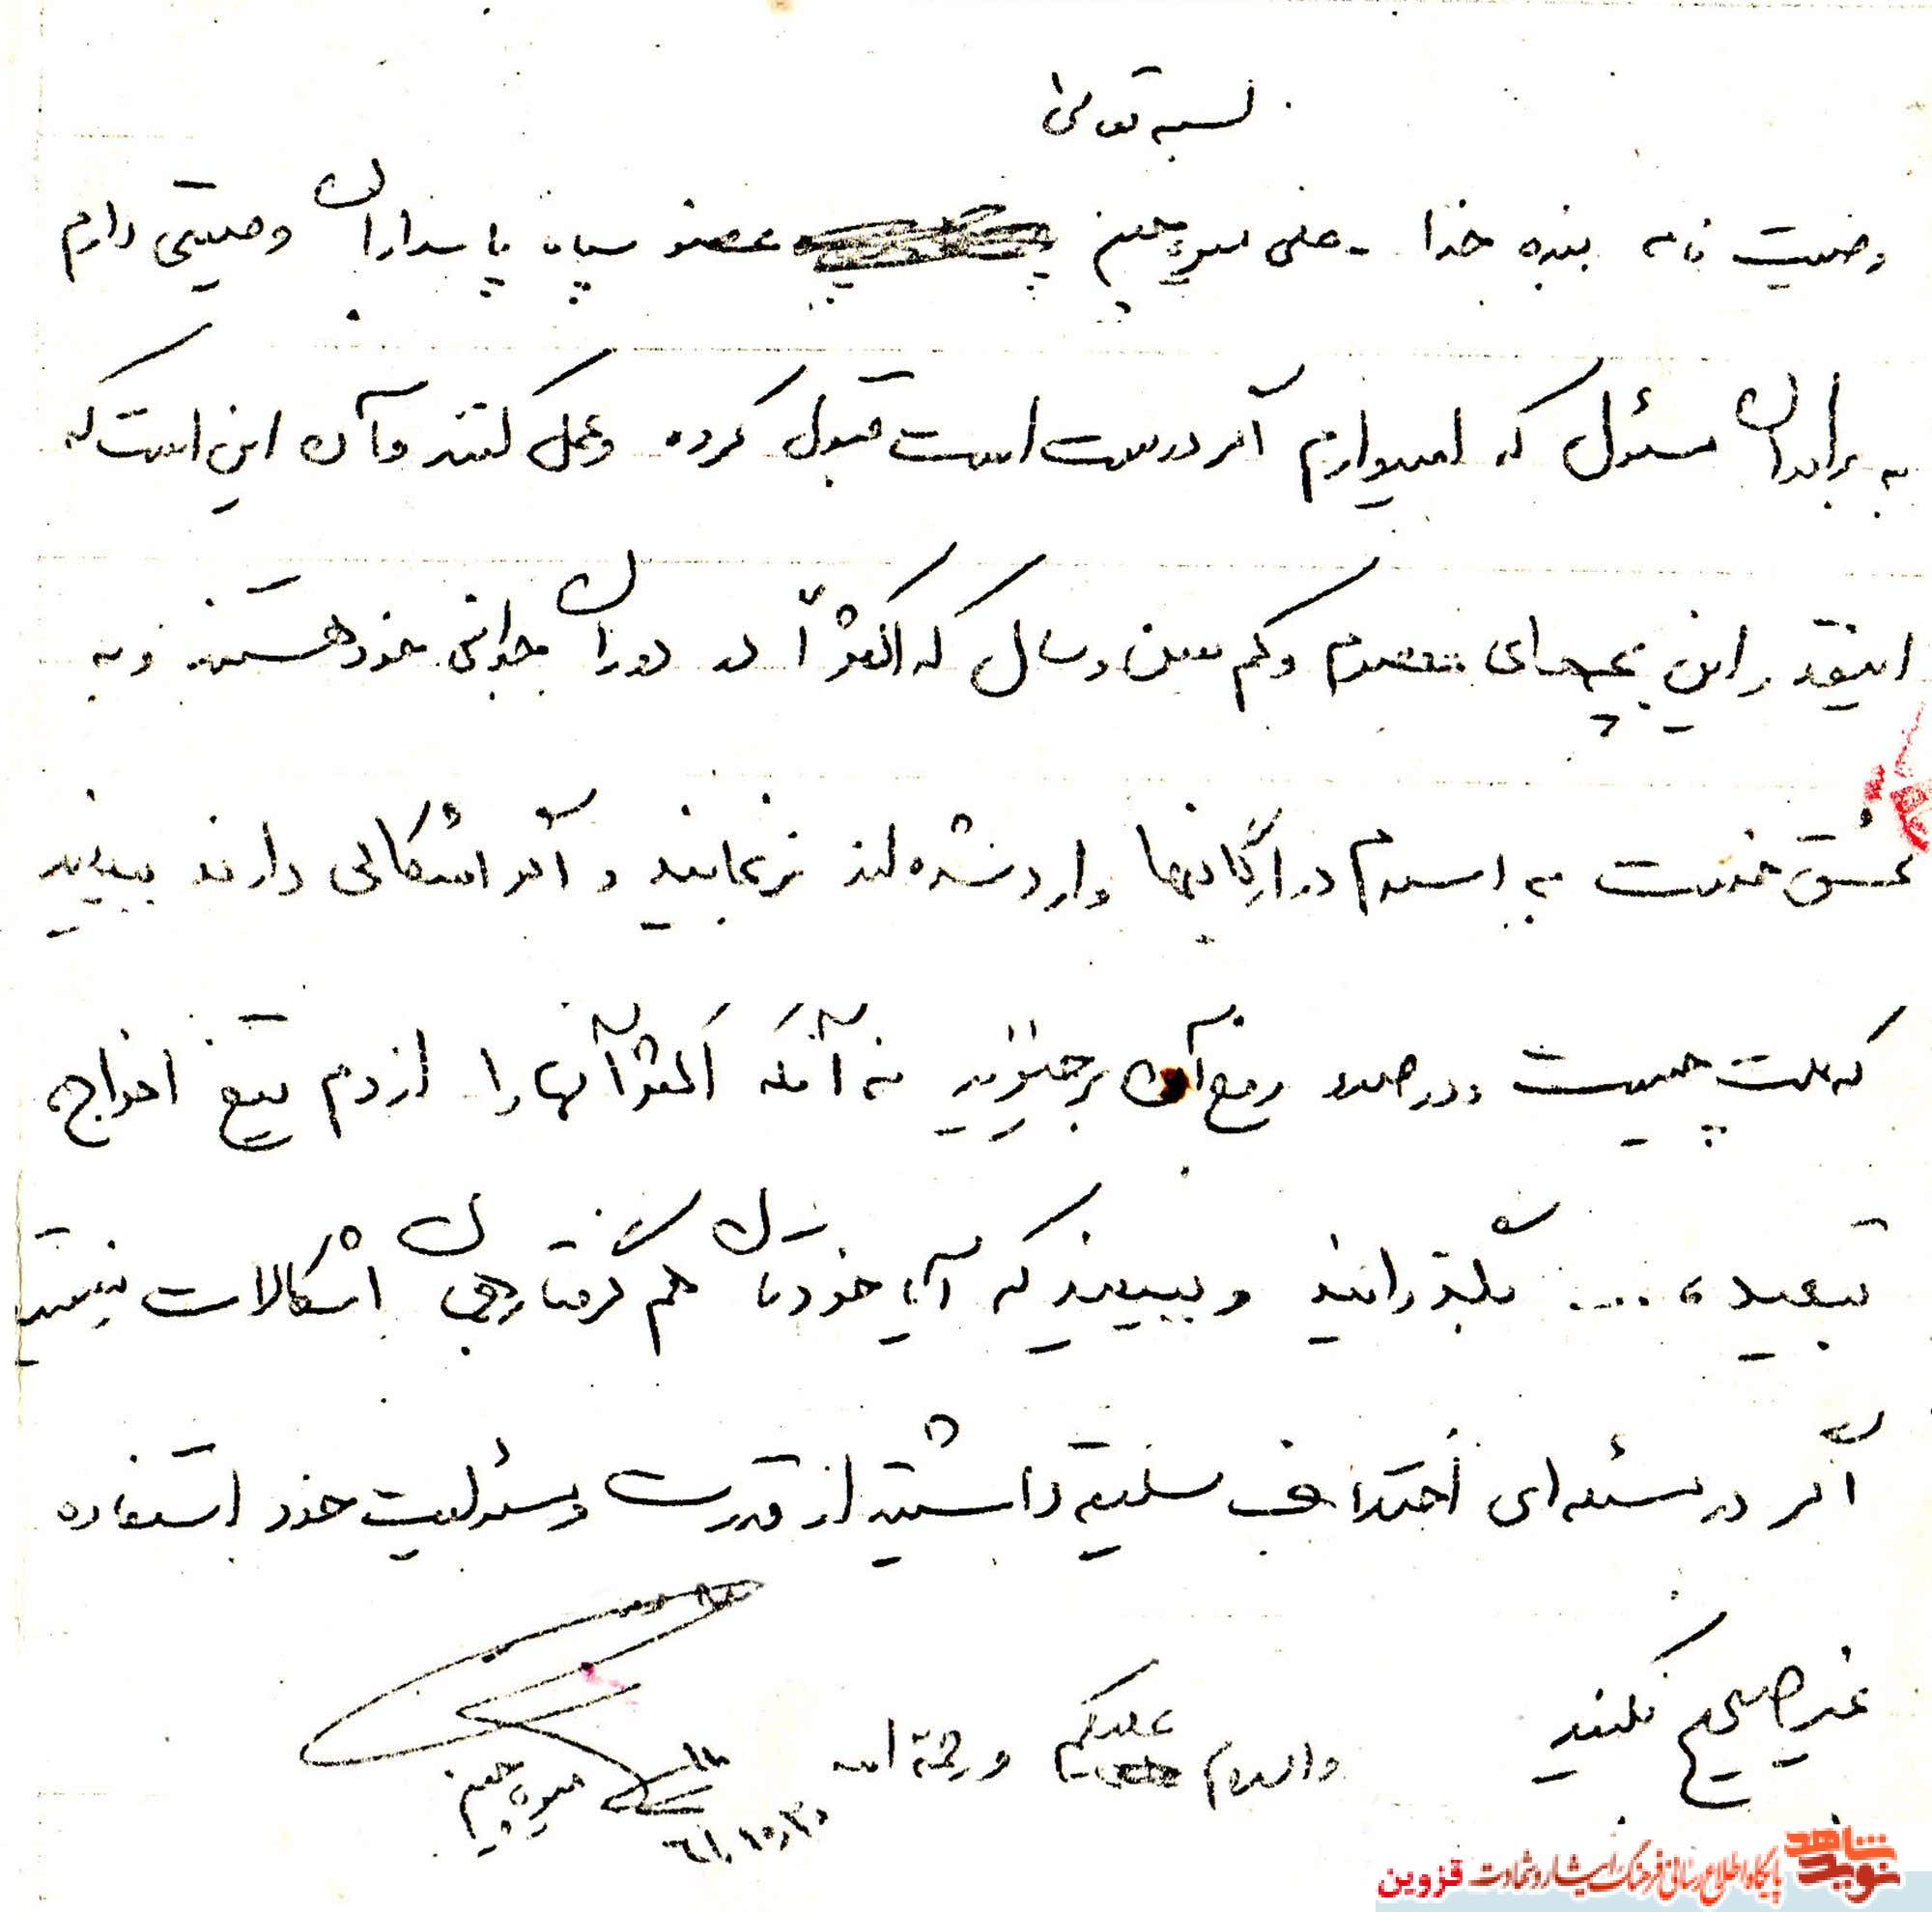 بسمه تعالی
وصیت نامه بنده خدا علی میوه چین عضو سپاه پاسداران وصیتی دارم
به برادران مسئول که امیدوارم اگر درست است قبول کرده و عمل کنند و آن این است که
اینقدر این بچه‌های معصوم و کم سن و سال که اکثراً در دوران جوانی خود هستند و به
عشق خدمت به اسلام در ارگانها وارد شده‌اند نرنجانید و اگر اشکالی دارند ببینید
که علت چیست و در صدد رفع آن برخیزید نه آنکه اکثر آنها را از دم تیغ اخراج،
تبعید، .... بگذرانید و ببینید که آیا خودتان هم گرفتار همین اشکالات نیستید
اگر در مسئله‌ای اختلاف سلیقه داشتید از قدرت و مسئولیت خود استفاده
غیر صحیح نکنید والسلام علیکم و رحمة الله
علی میوه چین
۶۱،۱۰،۲۰
نوید شاهد پایگاه اطلاع رسانی فرهنگ ایثار و شهادت قزوین